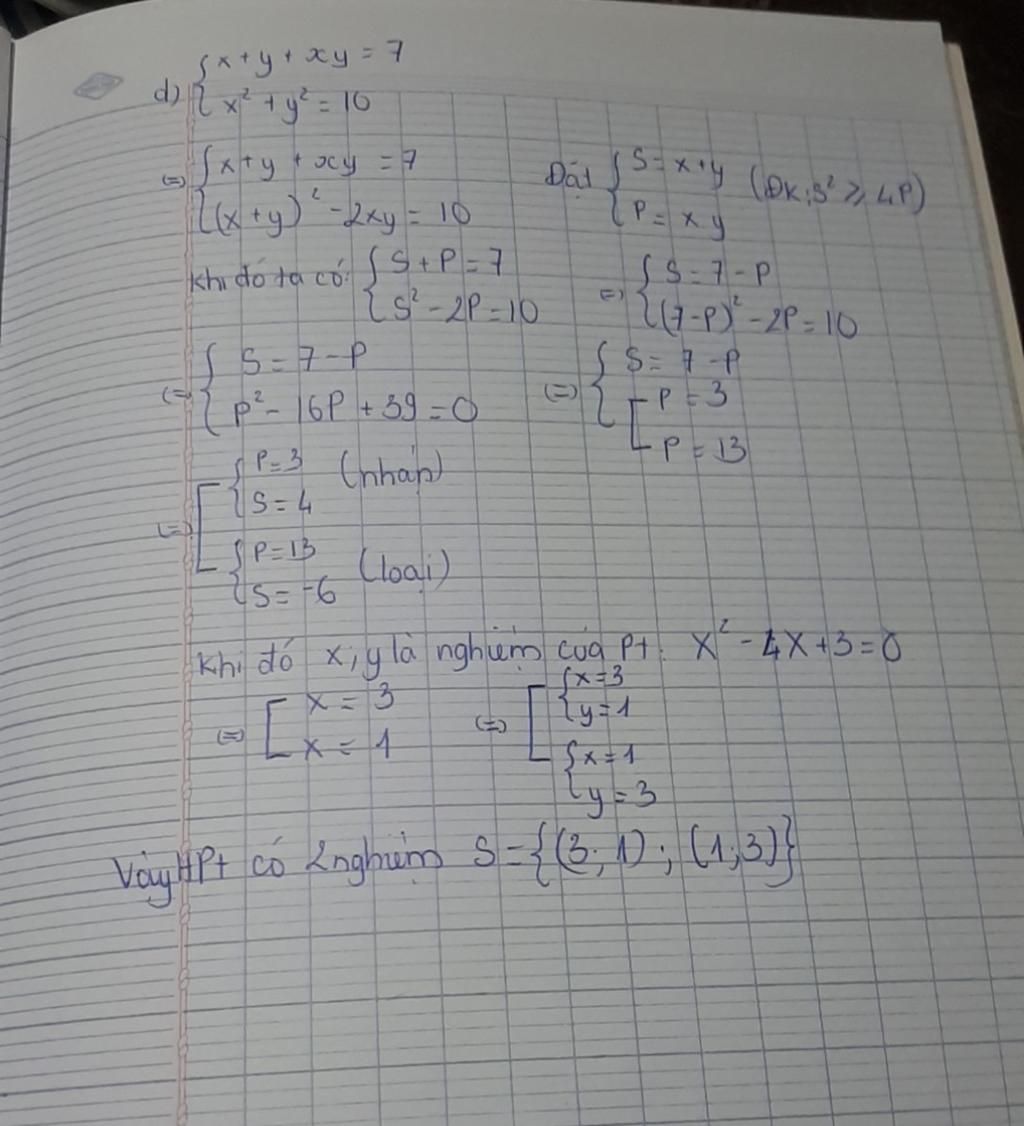 d) { x + y + xy = 7
{ x² + y² = 10
(=) { x + y + xy = 7
{ (x + y)² - 2xy = 10
Đặt { S = x + y (ĐK: S² ≥ 4P)
{ P = xy
Khi đó ta có: { S + P = 7
{ S² - 2P = 10
(=) { S = 7 - P
{ (7-P)² - 2P = 10
(=) { S = 7 - P
{ P² - 16P + 39 = 0
(=) { S = 7 - P
{ [ P = 3
[ P = 13
(=) [ { P = 3 (nhận)
{ S = 4
[ { P = 13 (loại)
{ S = -6
Khi đó x, y là nghiệm của Pt: X² - 4X + 3 = 0
(=) [ x = 3
[ x = 1
(=) [ { x = 3
{ y = 1
[ { x = 1
{ y = 3
Vậy HPt có 2 nghiệm S = {(3; 1); (1; 3)}